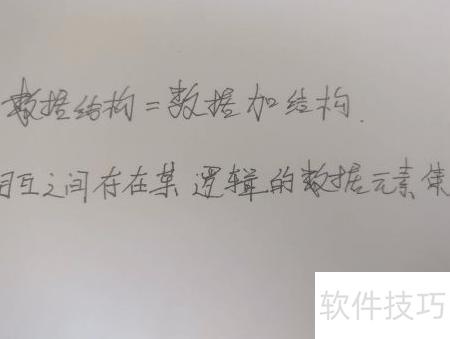 数据结构=数据加结构.
相互之间存在某逻辑的数据元素集
软件技巧